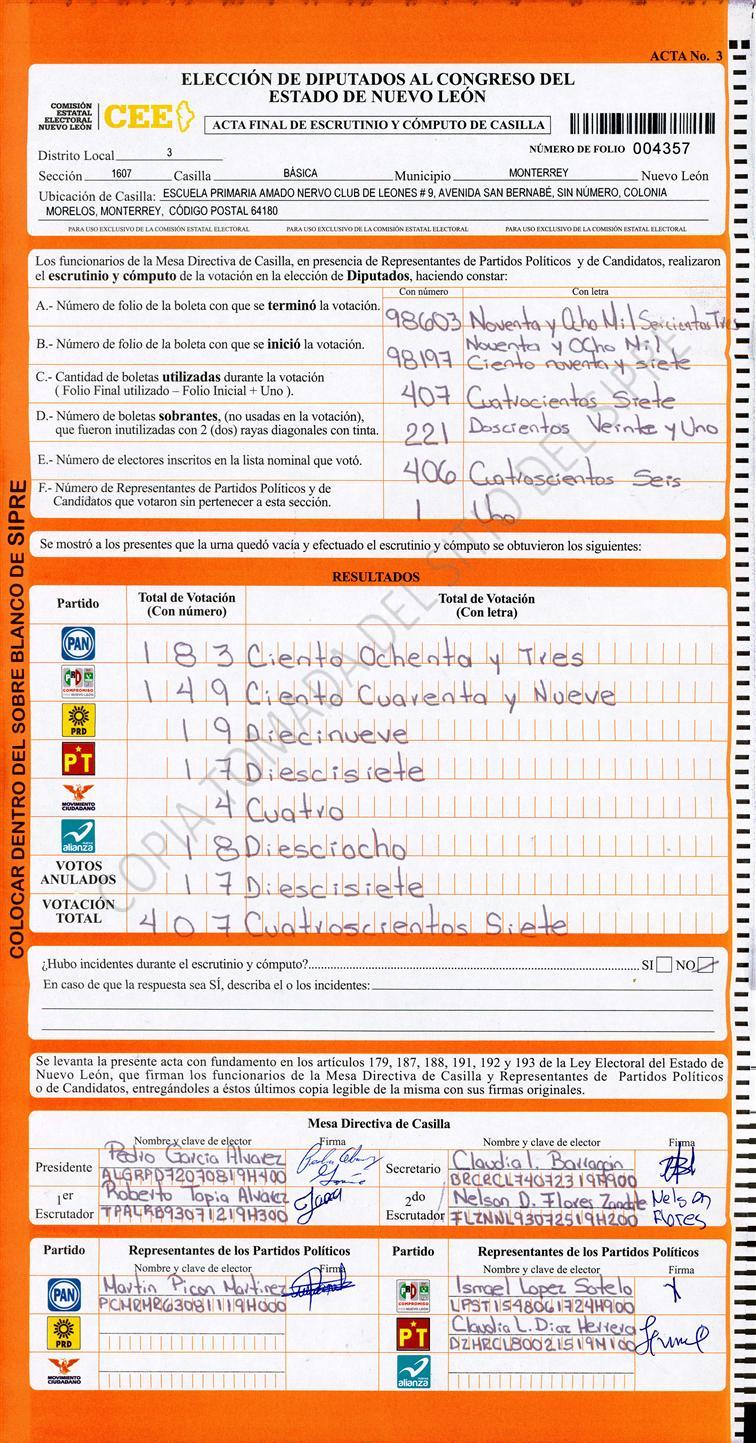 ACTA No. 3
ELECCIÓN DE DIPUTADOS AL CONGRESO DEL
ESTADO DE NUEVO LEÓN
COMISIÓN
ESTATAL
ELECTORAL
NUEVO LEÓN
CEE
ACTA FINAL DE ESCRUTINIO Y CÓMPUTO DE CASILLA
NÚMERO DE FOLIO 004357
Distrito Local 3
Sección 1607 Casilla BÁSICA Municipio MONTERREY Nuevo León
Ubicación de Casilla: ESCUELA PRIMARIA AMADO NERVO CLUB DE LEONES # 9, AVENIDA SAN BERNABÉ, SIN NÚMERO, COLONIA
MORELOS, MONTERREY, CÓDIGO POSTAL 64180
PARA USO EXCLUSIVO DE LA COMISIÓN ESTATAL ELECTORAL PARA USO EXCLUSIVO DE LA COMISIÓN ESTATAL ELECTORAL PARA USO EXCLUSIVO DE LA COMISIÓN ESTATAL ELECTORAL
Los funcionarios de la Mesa Directiva de Casilla, en presencia de Representantes de Partidos Políticos y de Candidatos, realizaron
el escrutinio y cómputo de la votación en la elección de Diputados, haciendo constar:
Con número Con letra
A.- Número de folio de la boleta con que se terminó la votación. 98603 Noventa y Ocho Mil Sercientos Tres
B.- Número de folio de la boleta con que se inició la votación. 98197 Noventa y Ocho Mil
Ciento noventa y siete
C.- Cantidad de boletas utilizadas durante la votación
( Folio Final utilizado – Folio Inicial + Uno ). 407 Cuatrocientos Siete
D.- Número de boletas sobrantes, (no usadas en la votación),
que fueron inutilizadas con 2 (dos) rayas diagonales con tinta. 221 Doscientos Veinte y Uno
E.- Número de electores inscritos en la lista nominal que votó. 406 Cuatroscientos Seis
F.- Número de Representantes de Partidos Políticos y de
Candidatos que votaron sin pertenecer a esta sección. 1 Uno
Se mostró a los presentes que la urna quedó vacía y efectuado el escrutinio y cómputo se obtuvieron los siguientes:
RESULTADOS
Partido Total de Votación (Con número) Total de Votación (Con letra)
PAN 183 Ciento Ochenta y Tres
COMPROMISO 149 Ciento Cuarenta y Nueve
PRD 19 Diecinueve
PT 17 Diescisiete
MOVIMIENTO CIUDADANO 4 Cuatro
alianza 18 Diesciocho
VOTOS ANULADOS 17 Diescisiete
VOTACIÓN TOTAL 407 Cuatroscientos Siete
COPIA TOMADA DEL SITIO DEL SIPRE
COLOCAR DENTRO DEL SOBRE BLANCO DE SIPRE
¿Hubo incidentes durante el escrutinio y cómputo? SI NO
En caso de que la respuesta sea SÍ, describa el o los incidentes:
Se levanta la presente acta con fundamento en los artículos 179, 187, 188, 191, 192 y 193 de la Ley Electoral del Estado de
Nuevo León, que firman los funcionarios de la Mesa Directiva de Casilla y Representantes de Partidos Políticos
o de Candidatos, entregándoles a éstos últimos copia legible de la misma con sus firmas originales.
Mesa Directiva de Casilla
Nombre y clave de elector Firma Nombre y clave de elector Firma
Presidente Pedro Garcia Alvarez Secretario Claudia I. Barragan
ALGRPD72070819H400 BRCRCL74072319M900
1er Escrutador Roberto Tapia Alvarez 2do Escrutador Nelson D. Flores Zandate Nelson Flores
TPALRB93071219H300 FLZNNL93072519H200
Partido Representantes de los Partidos Políticos Partido Representantes de los Partidos Políticos
Nombre y clave de elector Firma Nombre y clave de elector Firma
PAN Martin Picon Martinez COMPROMISO Ismael Lopez Sotelo
PCMRMR63081119H000 LPSTIS48061724H900
PRD PT Claudia L. Diaz Herrera
DZHRCL80021519M100
MOVIMIENTO CIUDADANO alianza